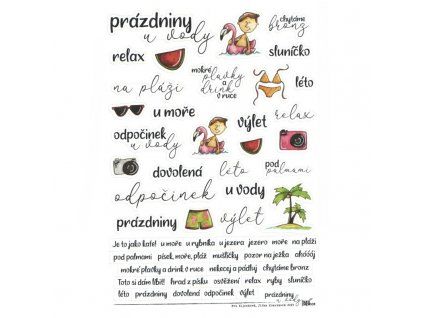 prázdniny
u vody
chytáme
bronz
relax
sluníčko
na pláži
mokré
plavky
a
drink
v ruce
léto
u moře
výlet
relax
odpočinek
u vody
dovolená
léto
pod
palmami
odpočinek
u vody
prázdniny
výlet
Je to jako kafe! u moře u rybníka u jezera jezero moře na pláži
pod palmami písek, moře, pláž mušličky pozor na ježka aháááj
mokré plavky a drink v ruce nekecej a pádluj chytáme bronz
Toto si dám líbit! hrad z písku osvěžení relax ryby sluníčko
léto prázdniny dovolená odpočinek výlet prázdniny
u vody